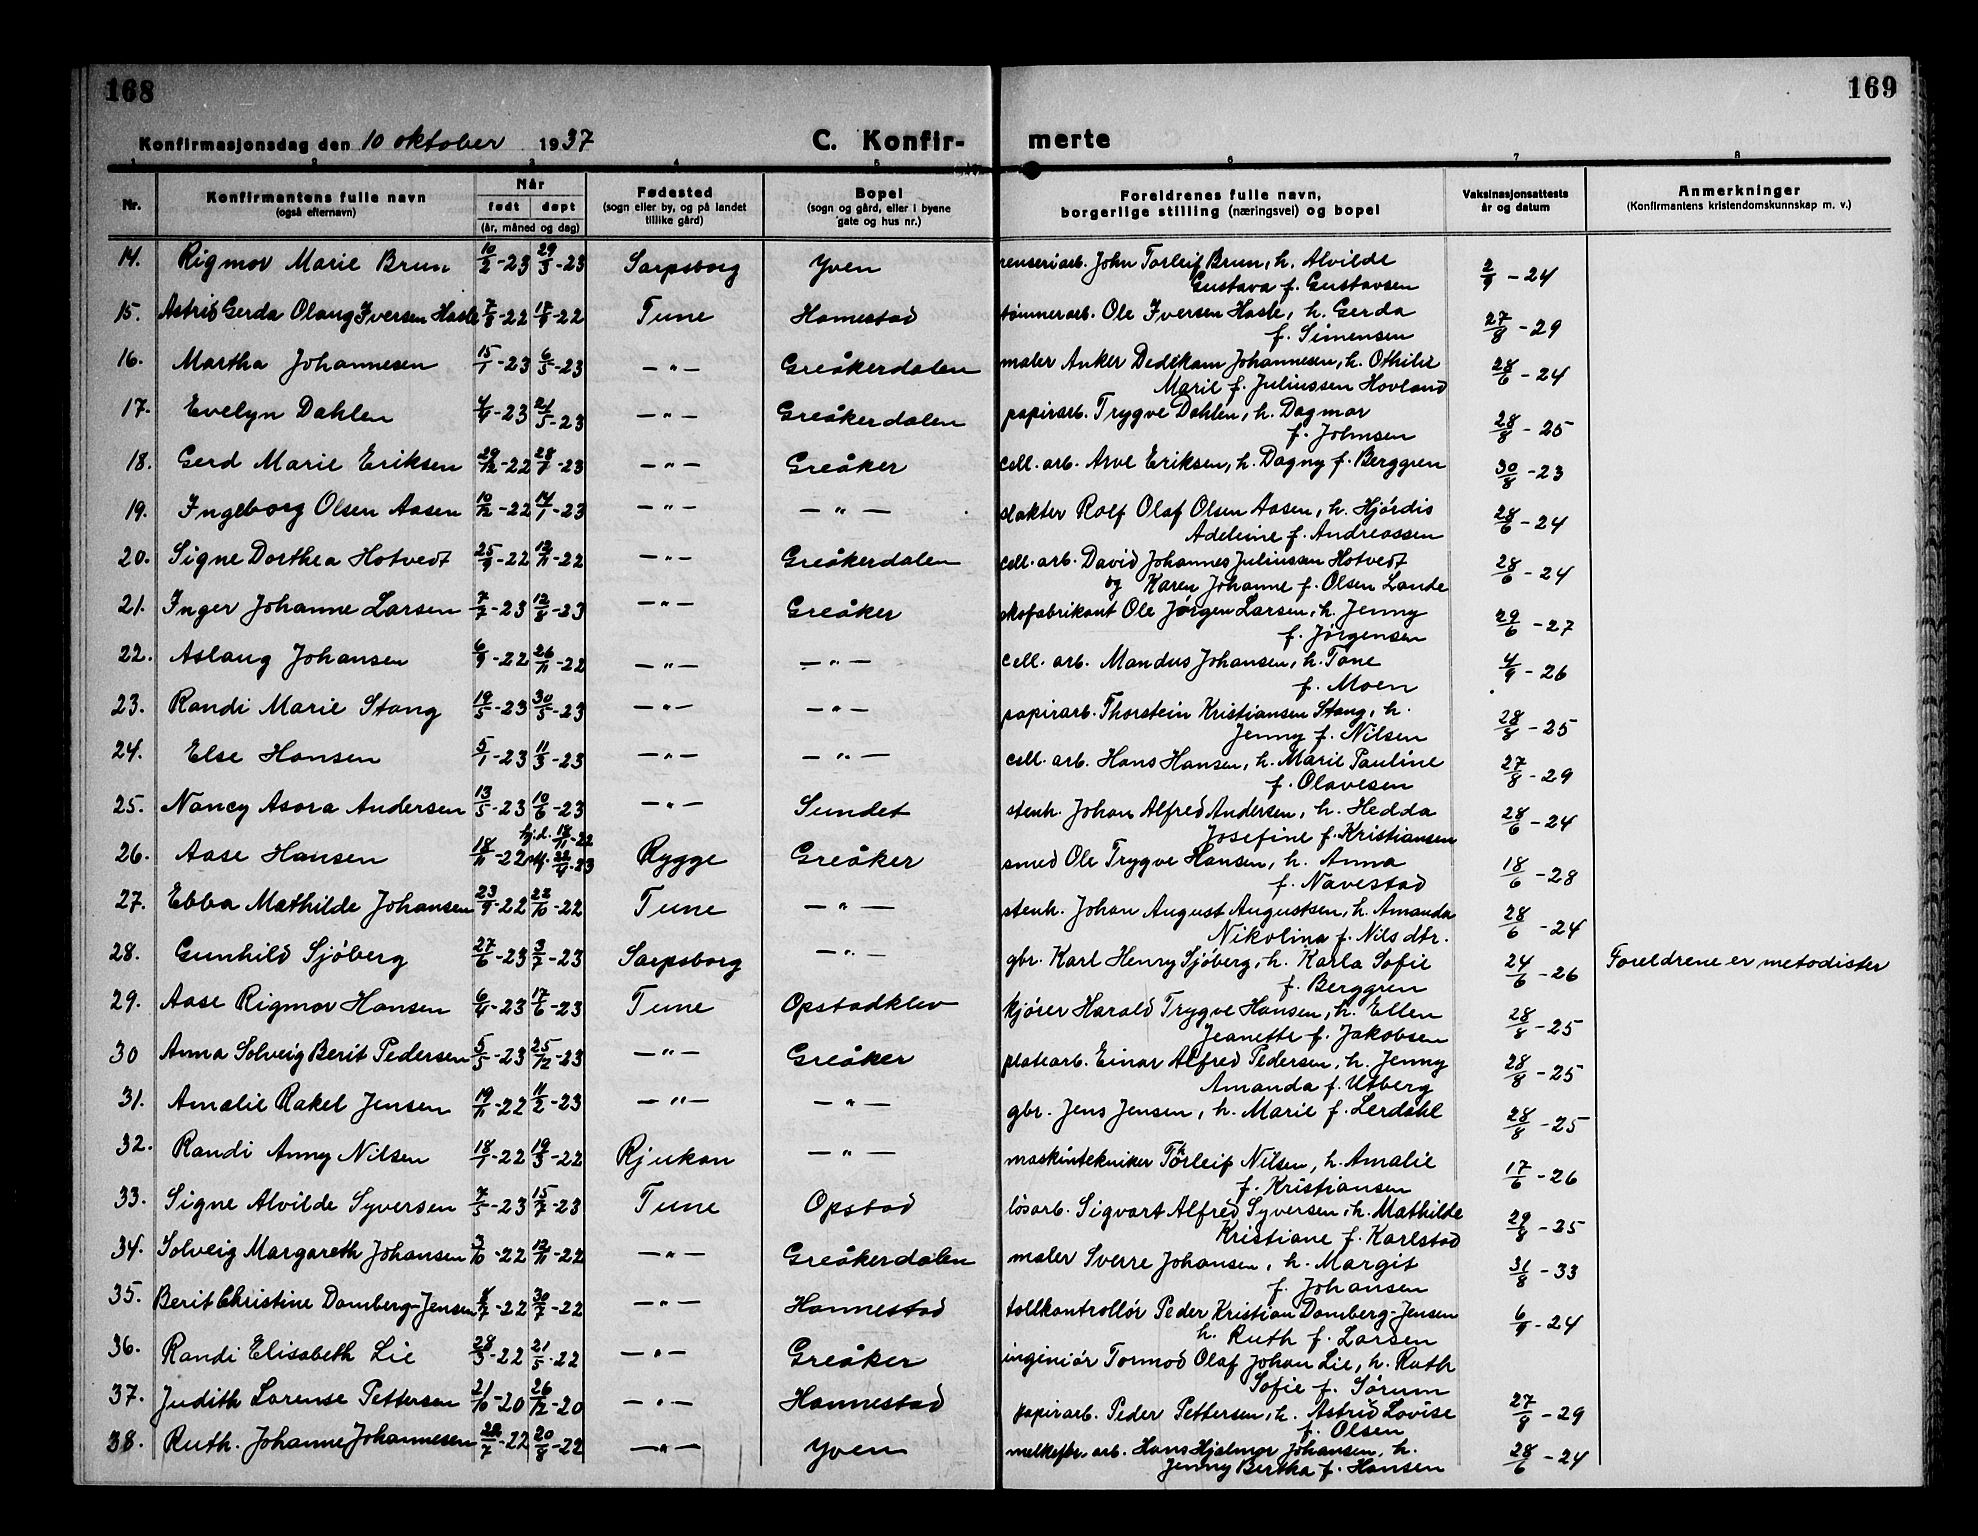 168
169
Konfirmasjonsdag den 10 oktober 1937 C. Konfir- merte
1 2 3 4 5 6 7 8
Nr. Konfirmantens fulle navn (også efternavn) Når født døpt (år, måned og dag) Fødested (sogn eller by, og på landet tillike gård) Bopel (sogn og gård, eller i byene gate og hus nr.) Foreldrenes fulle navn, borgerlige stilling (næringsvei) og bopel Vaksinasjonsattests år og datum Anmerkninger (Konfirmantens kristendomskunnskap m. v.)
14. Rigmor Marie Brun 10/2-23 29/3-23 Sarpsborg Yven renseriarb. John Torleif Brun, h. Alvilde
Gustava f. Gustavsen 2/9-24
15. Astrid Gerda Olaug Iversen Hasle 7/8-22 17/9-22 Tune Hamestad tømmerarb. Ole Iversen Hasle, h. Gerda
f. Simensen 27/8-29
16. Martha Johannesen 15/1-23 6/5-23 -"- Greåkerdalen maler Anker Dedekam Johannesen, h. Othilie
Marie f. Juliussen Hovland 28/6-24
17. Evelyn Dahlen 4/4-23 21/5-23 -"- Greåkerdalen papirarb. Trygve Dahlen, h. Dagmar
f. Johnsen 28/8-25
18. Gerd Marie Eriksen 29/12-22 28/7-23 -"- Greåker cell. arb. Arve Eriksen, h. Dagny f. Berggren 30/8-23
19. Ingeborg Olsen Aasen 10/12-22 14/1-23 -"- -"- slakter Rolf Olaf Olsen Aasen, h. Hjørdis
Adeleine f. Andreassen 28/6-24
20. Signe Dorthea Hotvedt 25/9-22 12/11-22 -"- Greåkerdalen cell. arb. David Johannes Juliussen Hotvedt
og Karen Johanne f. Olsen Lande 28/6-24
21. Inger Johanne Larsen 7/7-23 12/8-23 -"- Greåker skofabrikant Ole Jørgen Larsen, h. Jenny
f. Jørgensen 29/6-27
22. Aslaug Johansen 6/9-22 26/11-22 -"- -"- cell. arb. Mandus Johansen, h. Tone
f. Moen 4/9-26
23. Randi Marie Stang 19/5-23 30/5-23 -"- -"- papirarb. Thorstein Kristiansen Stang, h.
Jenny f. Nilsen 28/8-25
24. Else Hansen 5/1-23 11/3-23 -"- -"- cell. arb. Hans Hansen, h. Marie Pauline
f. Olavesen 27/8-29
25. Nancy Asora Andersen 13/5-23 10/6-23 -"- Sundet stenh. Johan Alfred Andersen, h. Hedda
Josefine f. Kristiansen 28/6-24
26. Aase Hansen 18/11-22 hj.d. 18/11-22
22/4-23 Rygge Greåker smed Ole Trygve Hansen, h. Anna
f. Navestad 18/6-28
27. Ebba Mathilde Johansen 23/9-22 22/10-22 Tune -"- stenh. Johan August Augustsen, h. Amanda
Nikolina f. Nilsdtr. 28/6-24
28. Gunhild Sjøberg 27/6-23 3/7-23 Sarpsborg -"- gbr. Karl Henry Sjøberg, h. Karla Sofie
f. Berggren 24/6-26 Foreldrene er metodister
29. Aase Rigmor Hansen 6/4-23 17/6-23 Tune Opstadklev kjører Harald Trygve Hansen, h. Ellen
Jeanette f. Jakobsen 28/8-25
30 Anna Solveig Berit Pedersen 5/5-23 25/12-23 -"- Greåker platearb. Einar Alfred Pedersen, h. Jenny
Amanda f. Utberg 28/8-25
31. Amalie Rakel Jensen 19/11-22 11/2-23 -"- -"- gbr. Jens Jensen, h. Marie f. Lerdahl 28/8-25
32. Randi Anny Nilsen 18/1-22 19/3-22 Rjukan -"- maskintekniker Thorleif Nilsen, h. Amalie
f. Kristiansen 17/6-26
33. Signe Alvilde Syversen 7/5-23 15/7-23 Tune Opstad løsarb. Sigvart Alfred Syversen, h. Mathilde
Kristiane f. Karlstad 29/8-25
34. Solveig Margareth Johansen 3/10-22 12/11-22 -"- Greåkerdalen maler Sverre Johansen, h. Margit
f. Johansen 31/8-33
35. Berit Christine Damberg-Jensen 2/7-22 30/7-22 -"- Hannestad tollkontrollør Peder Kristian Damberg-Jensen
h. Ruth f. Larsen 6/9-24
36. Randi Elisabeth Lie 28/3-22 21/5-22 -"- Greåker ingeniør Tormod Olaf Johan Lie, h. Ruth
Sofie f. Sørum
37. Judith Lorense Pettersen 21/10-20 26/12-20 -"- Hannestad papirarb. Peder Pettersen, h. Astrid Lovise
f. Olsen 27/8-29
38. Ruth. Johanne Johannesen 22/7-22 20/8-22 -"- Yven melkefbr. arb. Hans Hjalmar Johansen, h.
Jenny Bertha f. Hansen 28/6-24